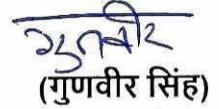 गुणवीर
(गुणवीर सिंह)